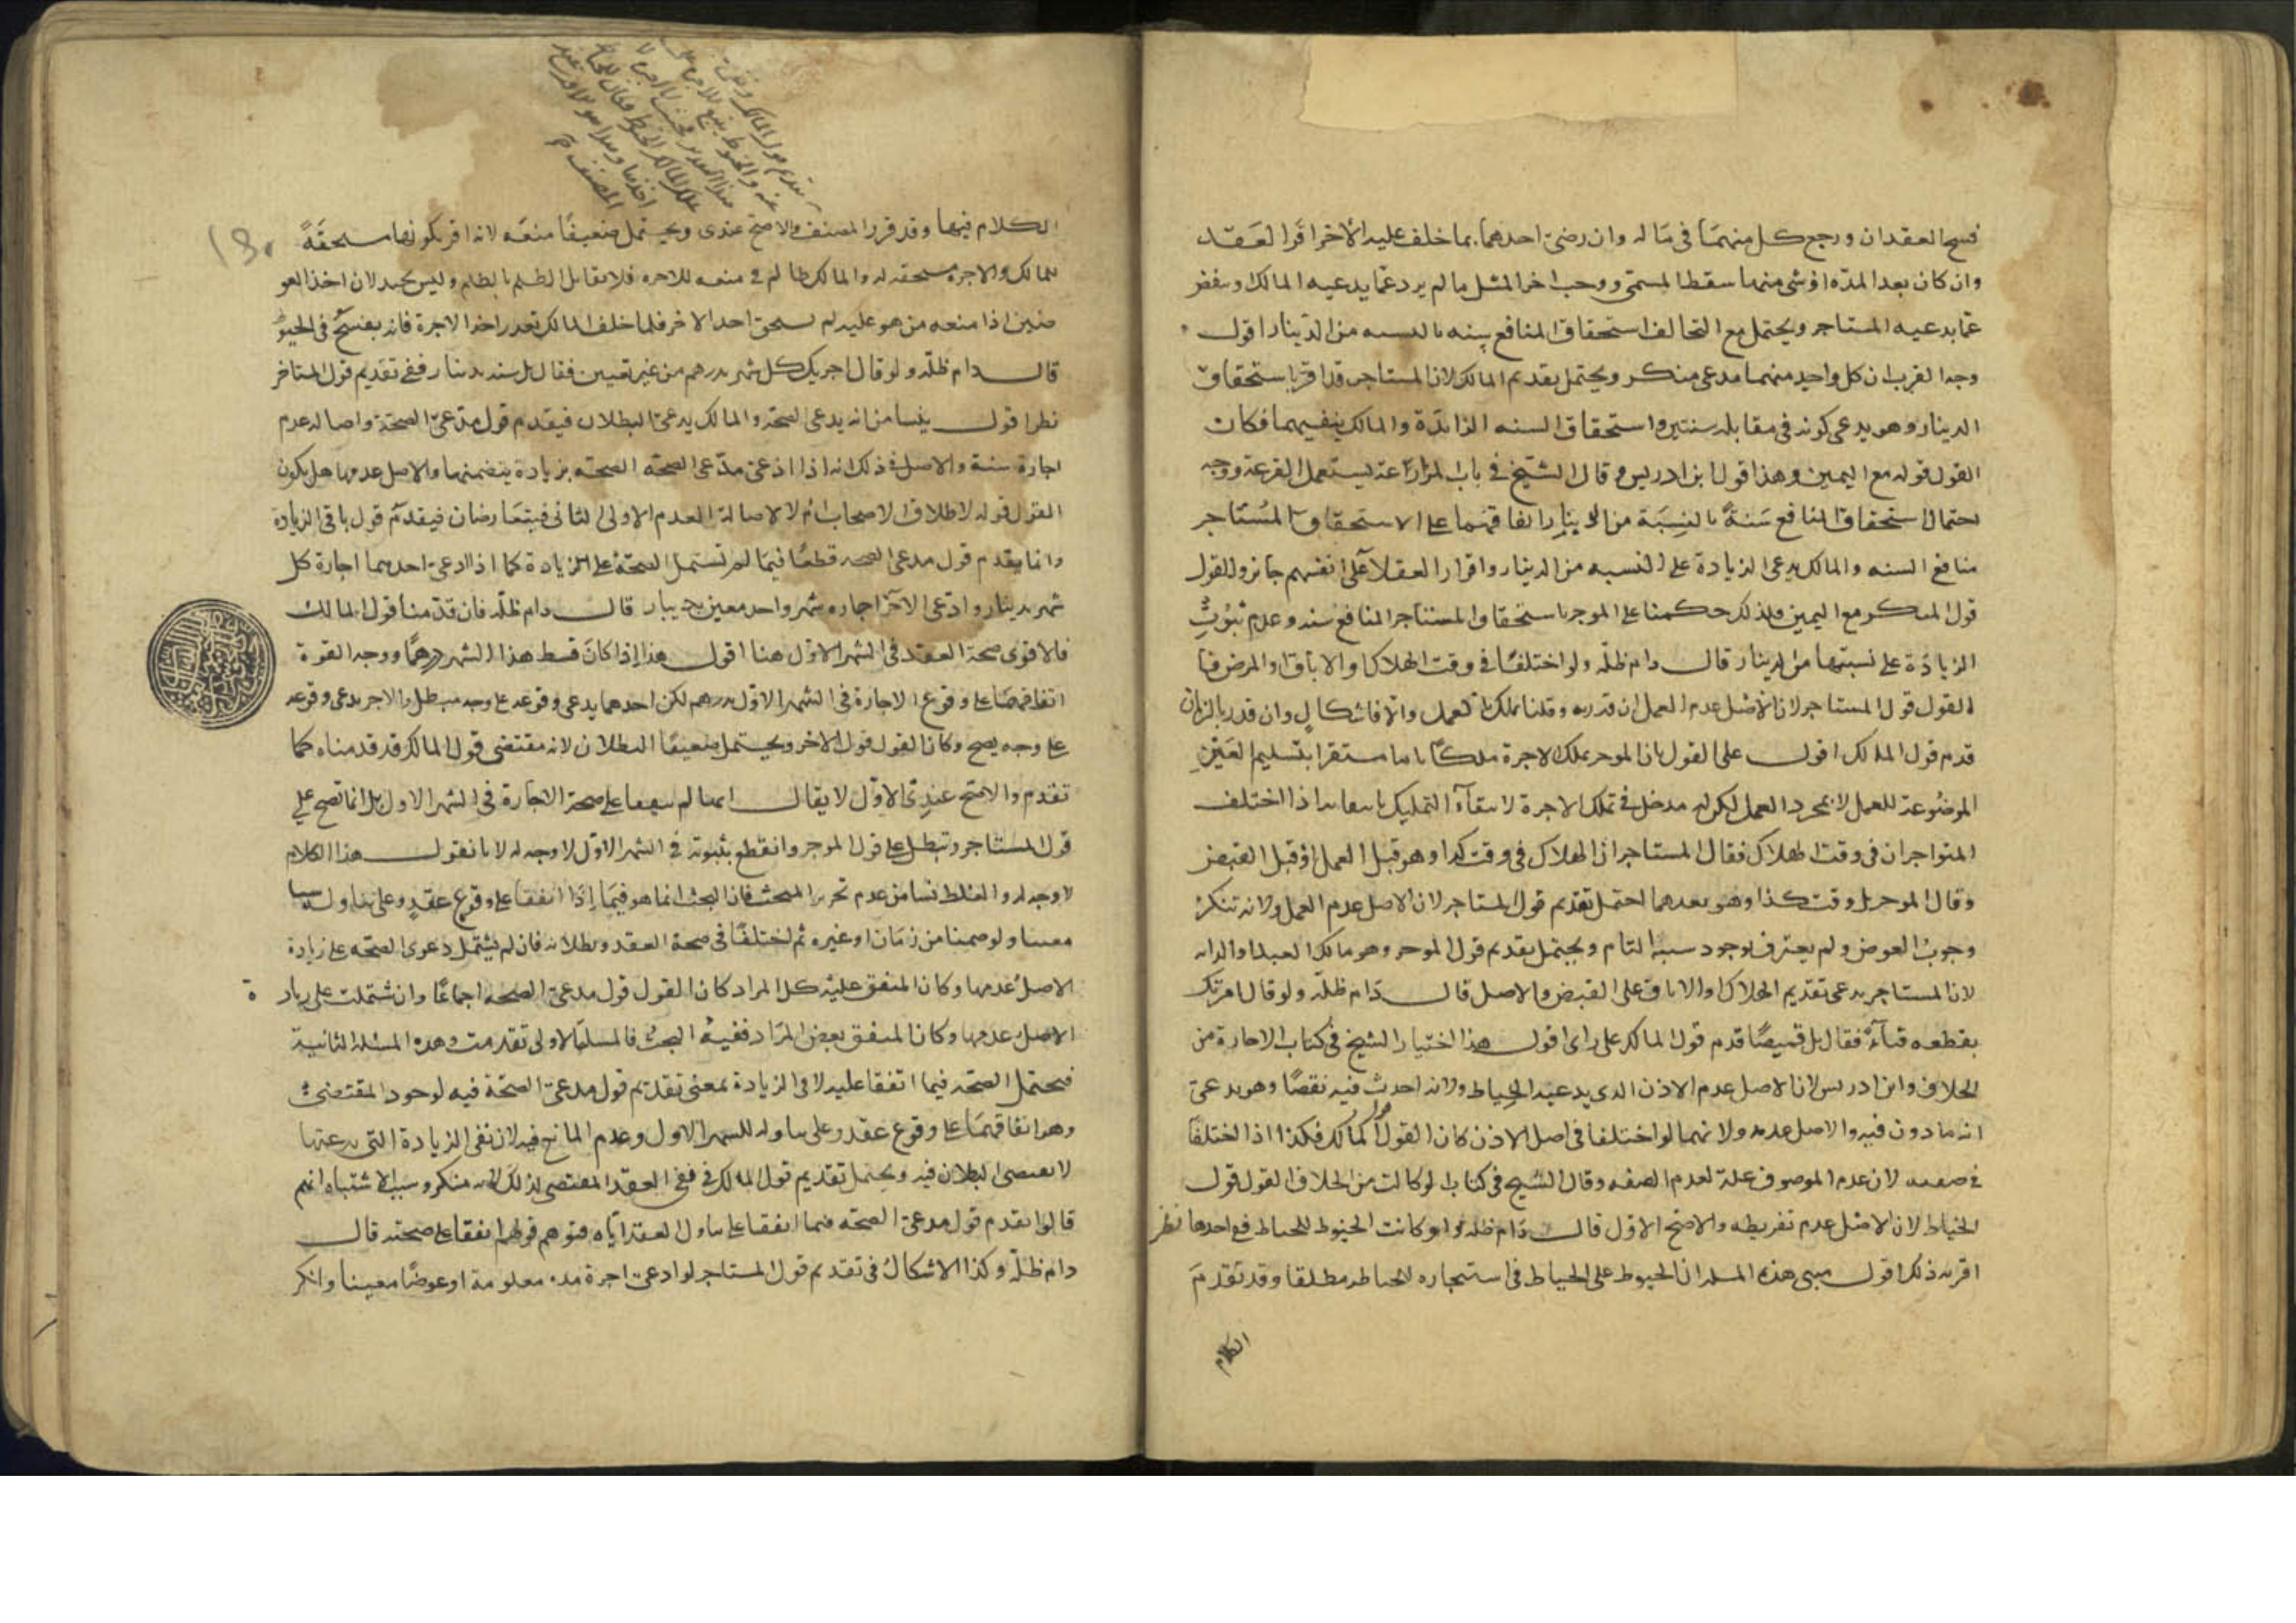 فسخ العقدان ورجع كل منهما في ماله وان رضى احدهما بما حلف عليه الاخر اقر العقد
وان كان بعد المدة او شي منها سقط المسمى ووجب اجر المثل ما لم يزد عما يدعيه المالك وينقص
عما يدعيه المستاجر ويحتمل مع التحالف استحقاق المنافع سنه بالنسبه من الدينار اقول
وجه القرب ان كل واحد منهما مدعى منكر ويحتمل تقديم المالك لان المستاجر قد اقر باستحقاق
الدينار وهو يدعى كونه في مقابله سنتين واستحقاق السنه الزائدة والمالك ينفيهما فكان
القول قوله مع اليمين وهذا قول ابن ادريس وقال الشيخ في باب المزارعة يستعمل القرعة ووجه
احتمال استحقاق المنافع سنة بالنسبة من الدينار اتفاقهما على الاستحقاق المستاجر
منافع السنه والمالك يدعى الزيادة على النسبه من الدينار واقرار العقلاء على انفسهم جائز والقول
قول المنكر مع اليمين فلذلك حكمنا على الموجر باستحقاق المستاجر المنافع سنه وعدم ثبوت
الزيادة على نسبتها من الدينار قال دام ظله ولو اختلفا في وقت الهلاك او الاباق او المرض فيا
لقول قول المستاجر لان الاصل عدم العمل ان قدر به وقلنا يملك بالعمل والا فاشكال وان قدر بالزمان
قدم قول المالك اقول على القول بان الموجر يملك الاجرة ملكا تاما مستقرا بتسليم العين
الموضوعة للعمل لا بمجرد العمل لكون له مدخل في تملك الاجرة لانتفاء التمليك بانتفائه اذا اختلف
المتواجران في وقت الهلاك فقال المستاجر ان الهلاك في وقت كذا وهو قبل العمل او قبل القبض
وقال الموجر بل وقت كذا وهو بعدهما احتمل تقديم قول المستاجر لان الاصل عدم العمل ولانه تنكر
وجوب العوض ولم يعترف بوجود سببه التام ويحتمل تقديم قول الموجر وهو مالك العبد او الدابه
لان المستاجر يدعى تقديم الهلاك او الاباق على القبض والاصل قال دام ظله ولو قال امرتك
بقطعه قباء فقال بل قميصا قدم قول المالك على راى اقول هذا اختيار الشيخ في كتاب الاجارة من
الخلاف وابن ادريس لان الاصل عدم الاذن الذى يدعيه الخياط ولانه احدث فيه نقصا وهو يدعى
انه ماذون فيه والاصل عدمه ولانهما لو اختلفا في اصل الاذن كان القول قول المالك فكذا اذا اختلفا
في صفته لان عدم الموصوف علة لعدم الصفه وقال الشيخ في كتاب الوكالت من الخلاف القول قول
الخياط لان الاصل عدم تفريطه والاصح الاول قال دام ظله ولو كانت الخيوط للخياط فع احدها نظر
اقربه ذلك اقول مبنى هذه المسله ان الخيوط على الخياط في استيجاره للخياطه مطلقا وقد تقدم
الكلام
الكلام فيها وقد قرر المصنف والاصح عندى ويحتمل ضعيفا منعه لانه اقر بكونها مستحقة
للمالك والاجرة مستحقه له والمالك ظالم في منعه للاجره فلا يقابل الظلم بالظلم وليس بجيد لان اخذ العو
ضين اذا منعه من هو عليه لم يستحق احد الاخر فلما حلف المالك تعذر اخذ الاجرة فانه يفسخ في الخيوط
قال دام ظله ولو قال اجرتك كل شهر بدرهم من غير تعيين فقال بل سنه بدينار ففي تقديم قول المستاجر
نظر اقول ينشا من انه يدعى الصحة والمالك يدعى البطلان فيقدم قول مدعى الصحة واصاله عدم
اجارة سنة والاصل في ذلك انه اذا ادعى مدعى الصحه الصحته بزيادة يتضمنها والاصل عدمها هل يكون
القول قوله لاطلاق الاصحاب ام لا لاصالة العدم الاولى الثاني فيتعارضان فيقدم قول باقي الزيادة
وانما يقدم قول مدعى الصحه قطعا فيما لم تستمل الصحة على الزيادة كما اذا ادعى احدهما اجارة كل
شهر بدينار وادعى الاخر اجاره شهر واحد معين بدينار قال دام ظله فان قدمنا قول المالك
فالاقوى صحة العقد في الشهر الاول هنا اقول هذا اذا كان قسط هذا الشهر درهما ووجه القوة
اتفاقهما على وقوع الاجارة في الشهر الاول بدرهم لكن احدهما يدعى وقوعه على وجه مبطل والاخر يدعى وقوعه
على وجه يصح وكان القول قول الاخر ويحتمل ضعيفا البطلان لانه مقتضى قول المالك قد قدمناه كما
تقدم والاصح عندى الاول لا يقال انهما لم يتفقا على صحة الاجارة في الشهر الاول بل انما تصح على
قول المستاجر وتبطل على قول الموجر وانقطع بثبوته في الشهر الاول لا وجه له لانا نقول هذا الكلام
لا وجه له والغلط نشا من عدم تحرير المبحث فان البحث انما هو فيما اذا اتفقا على وقوع عقد وعلى تناوله شيا
معينا ولو ضمنا من زمان او غيره ثم اختلفا في صحة العقد وبطلانه فان لم يشتمل دعوى الصحه على زيادة
الاصل عدمها وكان المتفق عليه كل المراد كان القول قول مدعى الصحه اجماعا وان شتملت على زيادة
الاصل عدمها وكان المتفق بعض المراد ففيه البحث فالمسله الاولى تقدمت وهذه المسئله الثانية
فيحتمل الصحه فيما اتفقا عليه لا في الزيادة بمعنى تقديم قول مدعى الصحة فيه لوجود المقتضى
وهو اتفاقهما على وقوع عقد وعلى تناوله للشهر الاول وعدم المانع فيه لان نفى الزيادة التي يدعيها
لا يقتضى البطلان فيه ويحتمل تقديم قول المالك في نفى العقد المقتضى لذلك لانه منكر وسبب الاشتباه انهم
قالوا يقدم قول مدعى الصحه فيما اتفقا على تناول العقد اياه فتوهم قولهم اتفقا على صحته قال
دام ظله وكذا الاشكال في تقديم قول المستاجر لو ادعى اجرة مده معلومة او عوضا معينا وانكر